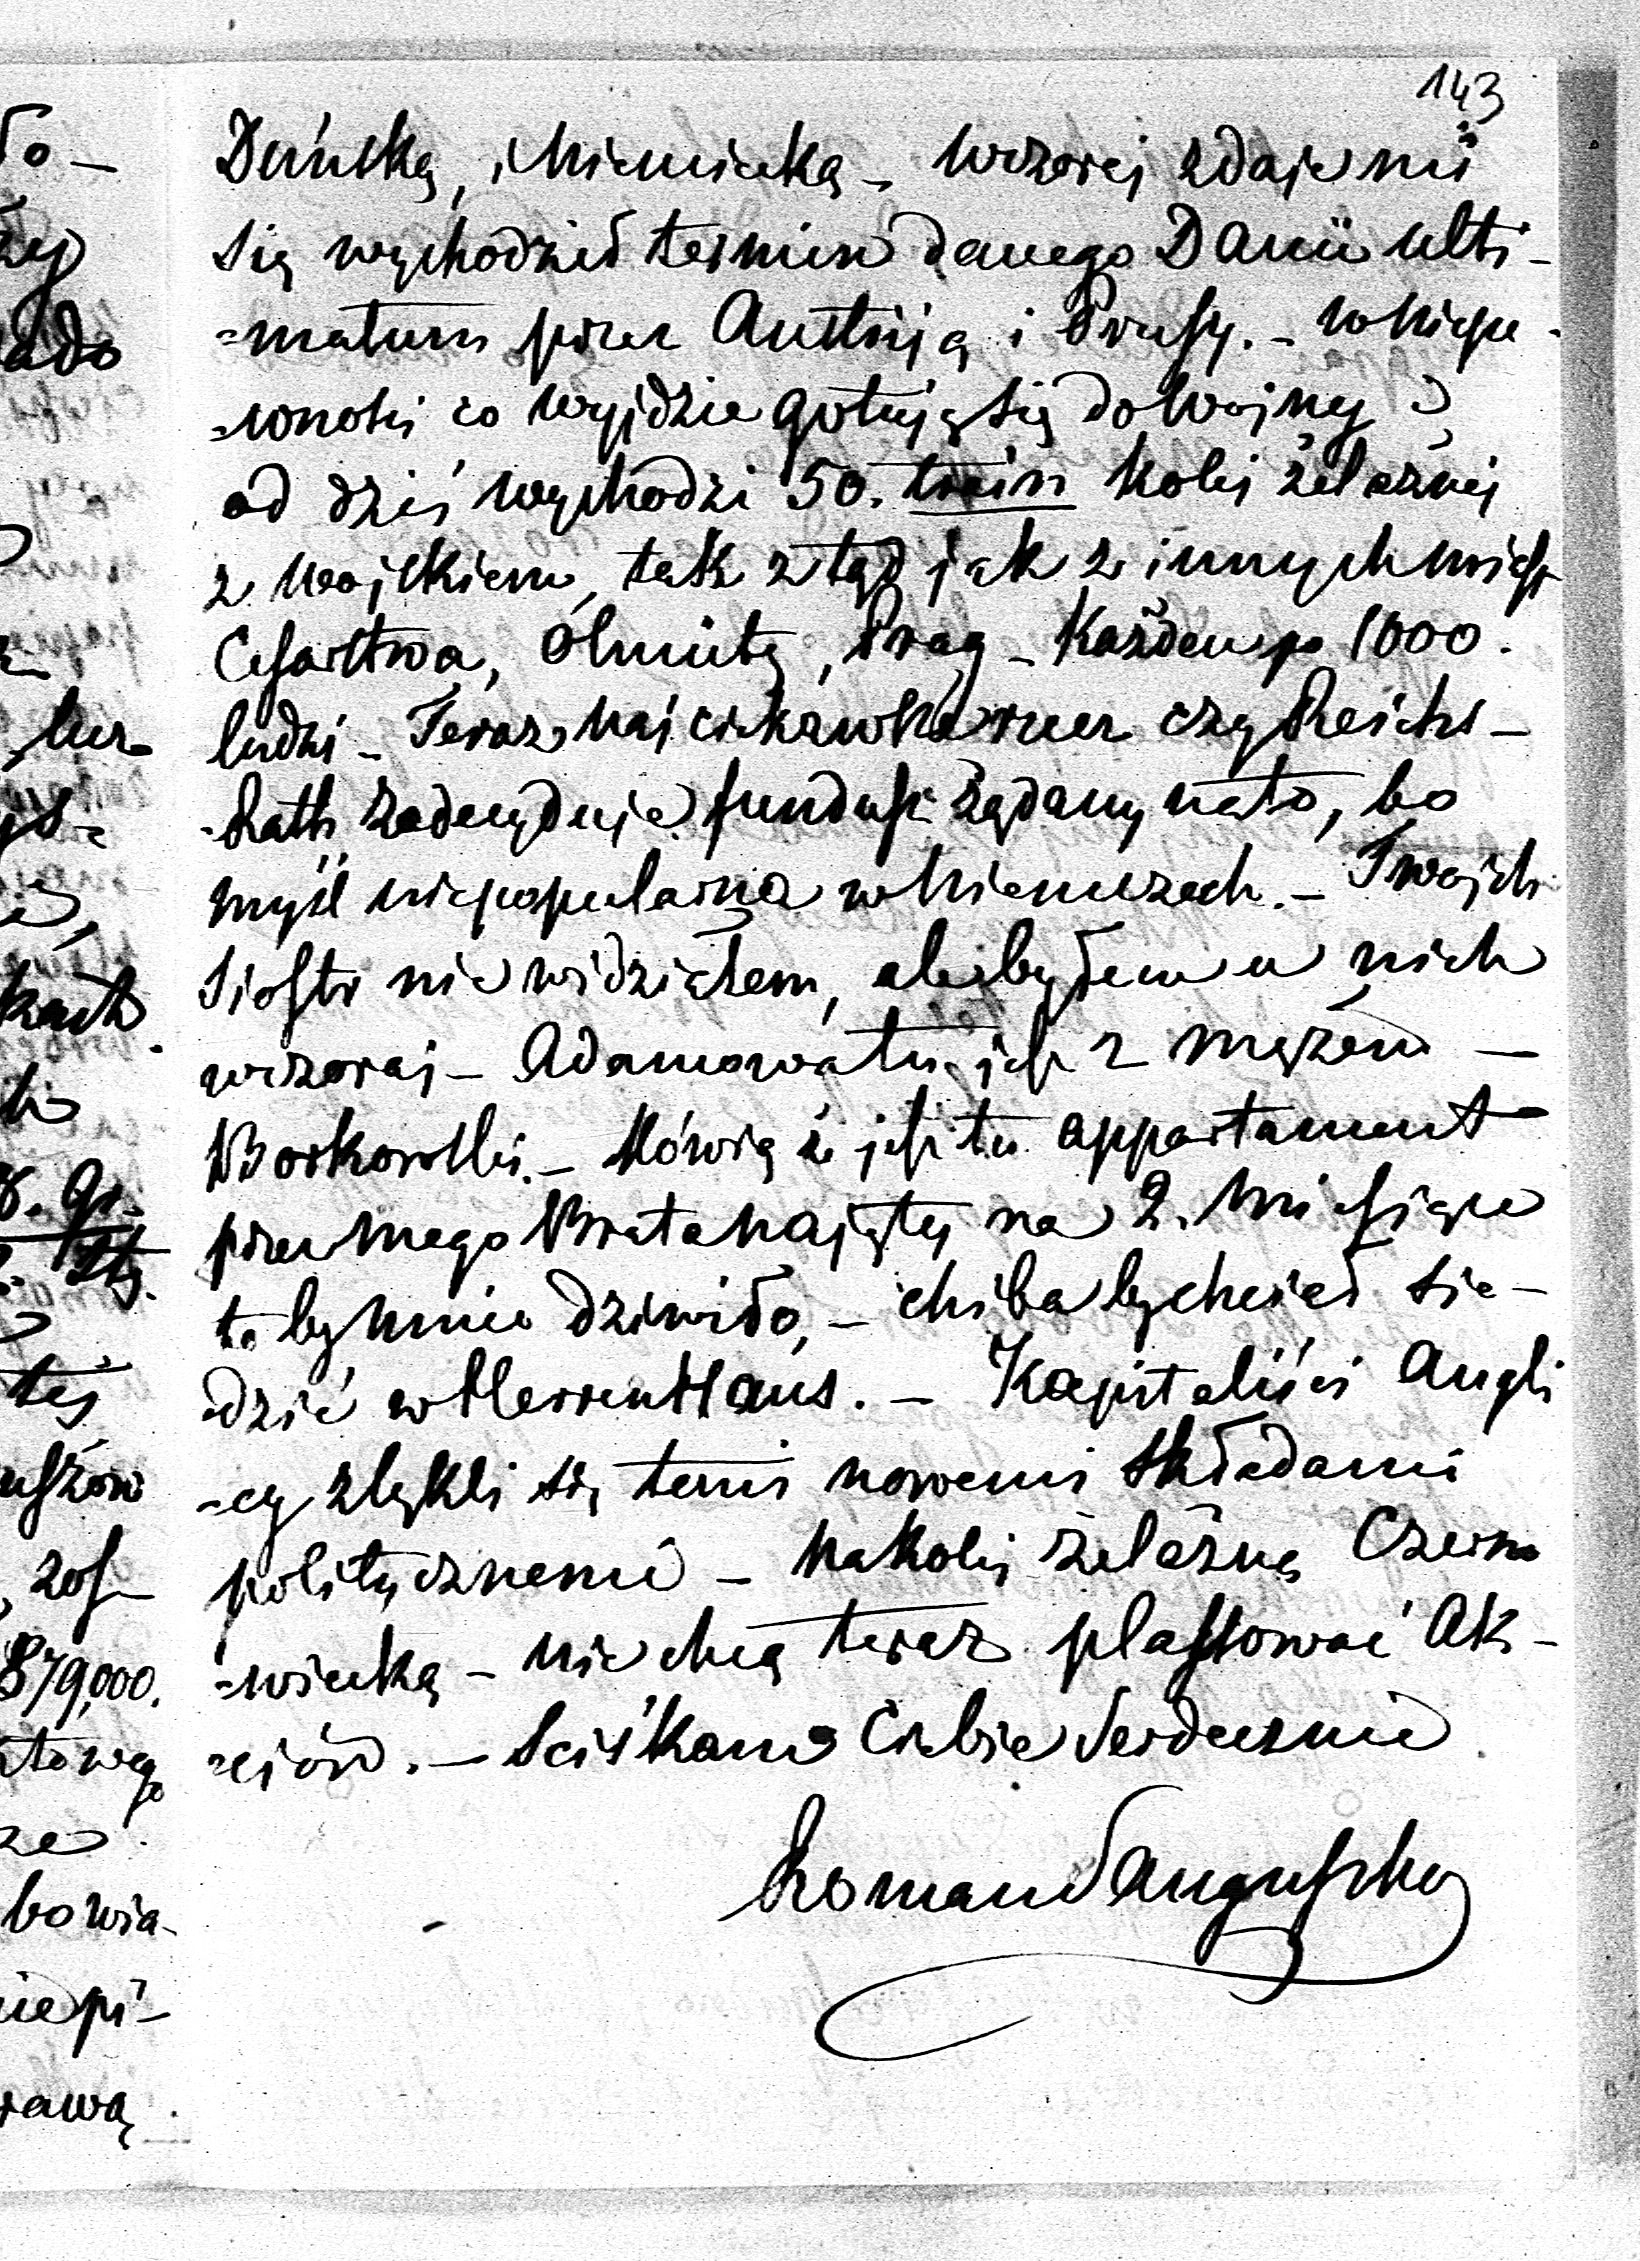 143
Duńską, i Niemiecką – Wczoraj zdaje mi
się wychodził termin danego Danii ulti-
=matum przez Austryją i Prusy. – w niepe-
=wności co wyjdzie gotują się do Wojny i
od dziś wychodzi 50. train Kolei żelaznej
z wojskiem, tak ztąd jak z innych miast
Cesarstwa, Olmütz, Prag – każden po 1000.
ludzi – Teraz najciekawsza rzecz czy Reichs-
-Rath zadecyduje fundusz żądany na to, bo
myśl niepopularna w Niemczech. – Twojch
Siostr nie widziałem, ale byłem u nich
wczoraj – Adamowa tu jest z mężem –
Borkowski. – Mówią że jest tu appartament
przez mego Brata najęty na 2. miesiące
to by mnie dziwiło, – chiba by chciał sie-
dzić w HerrenHaus. – Kapitaliści Angli
-cy zlękli się temi nowemi składami
politycznemi – na kolej żelazną Czernio
-wiecką – nie chcą teraz plassować Ak-
-cjów. – Sciskam Ciebie Serdecznie
Roman Sanguszko